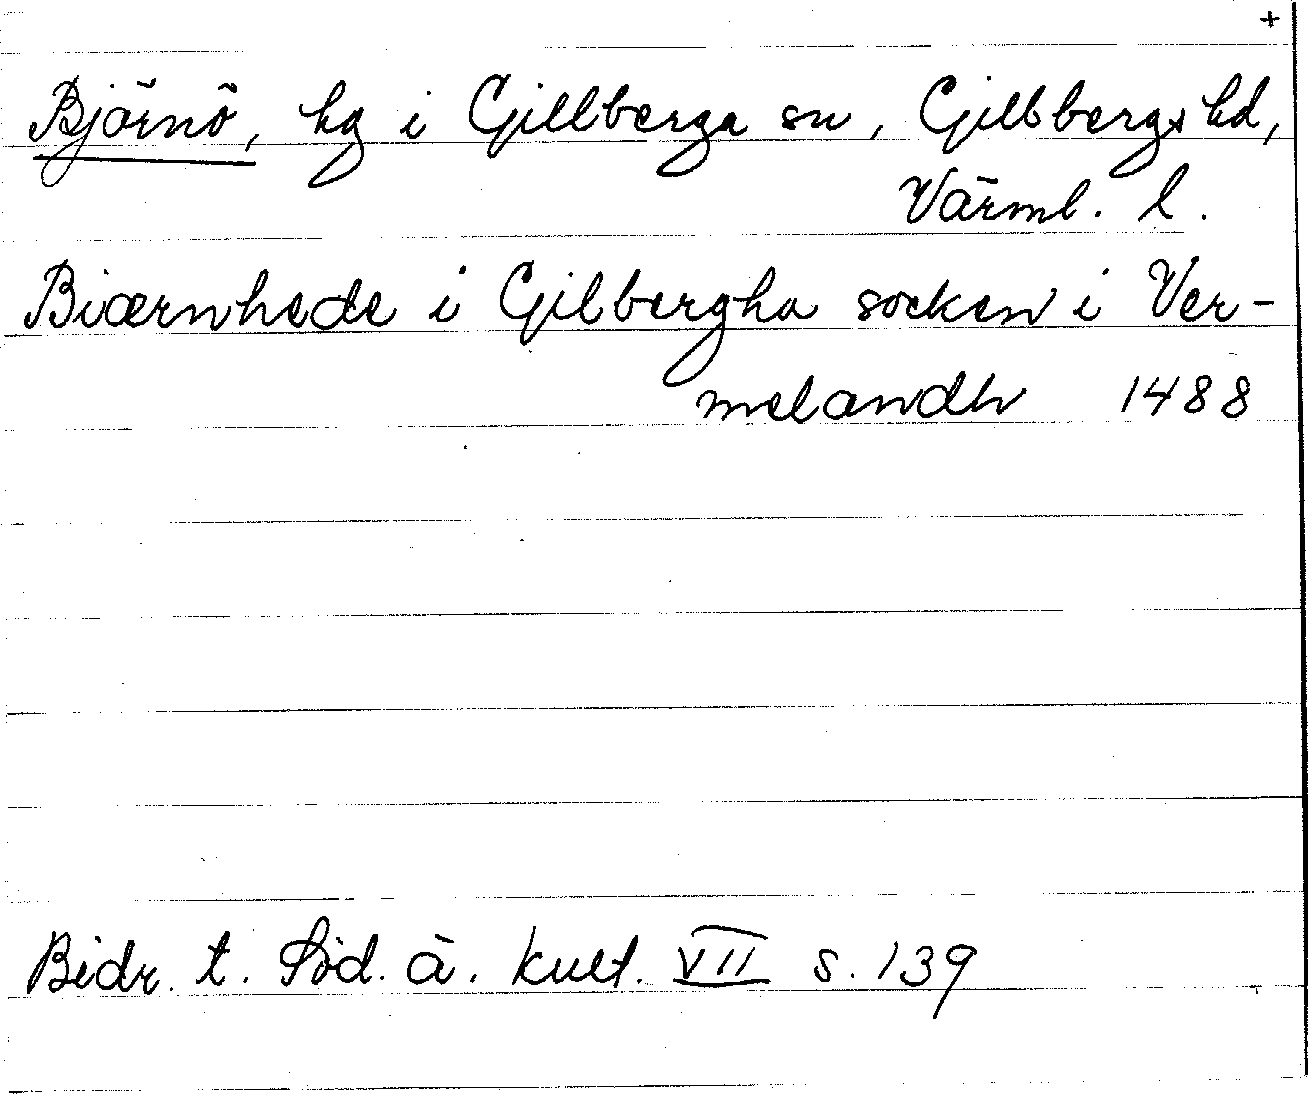 +
Björnö, hg i Gillberga sn, Gillbergs hd,
Värml. l.
Biærnhede i Gilbergha socken i Ver-
melandh 1488
Bidr. t. Söd. ä. kult. VII s. 139